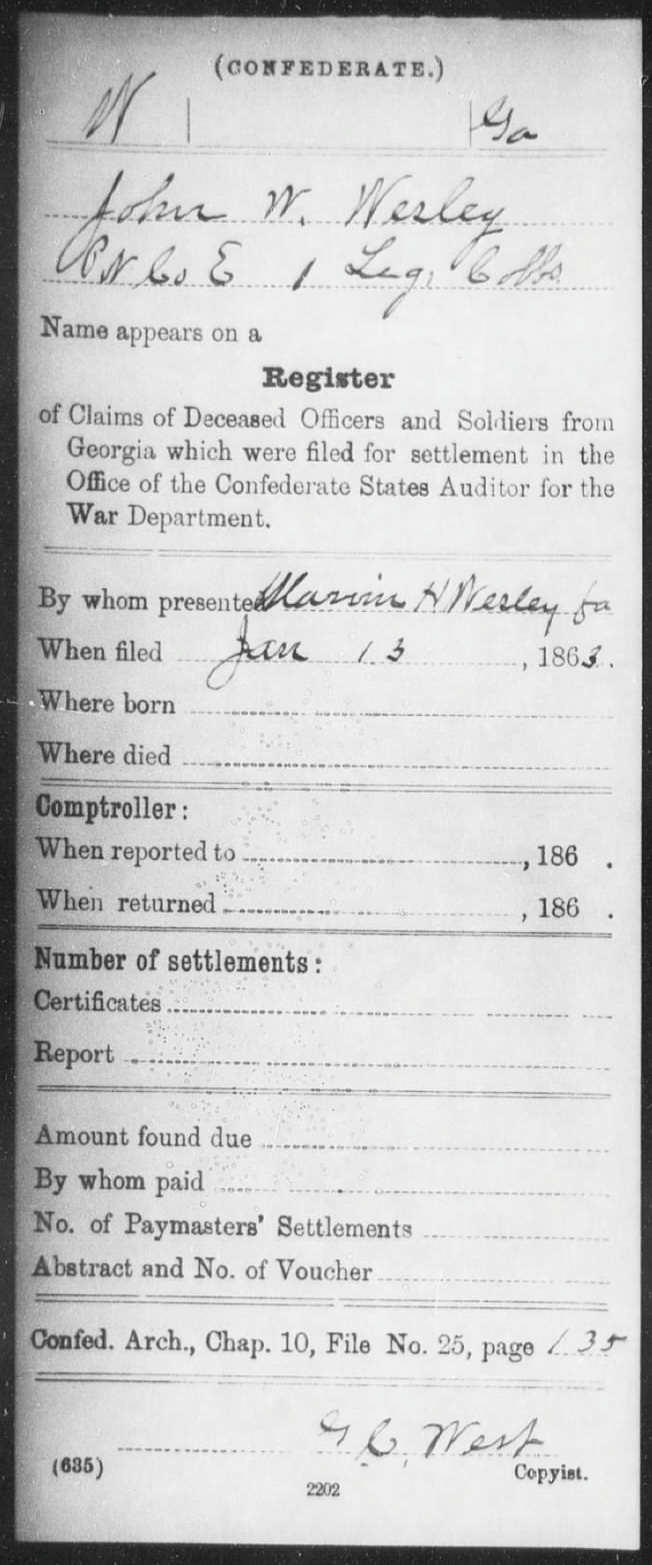 (CONFEDERATE.)
W | | Ga
John W. Wesley
Co E 1 Leg. Cobbs
Name appears on a
Register
of Claims of Deceased Officers and Soldiers from
Georgia which were filed for settlement in the
Office of the Confederate States Auditor for the
War Department.
By whom presented Marvin H Wesley fa
When filed Jan 13, 1863.
Where born
Where died
Comptroller:
When reported to , 186 .
When returned , 186 .
Number of settlements:
Certificates
Report
Amount found due
By whom paid
No. of Paymasters' Settlements
Abstract and No. of Voucher
Confed. Arch., Chap. 10, File No. 25, page 135
G. C. West
(635) Copyist.
2202